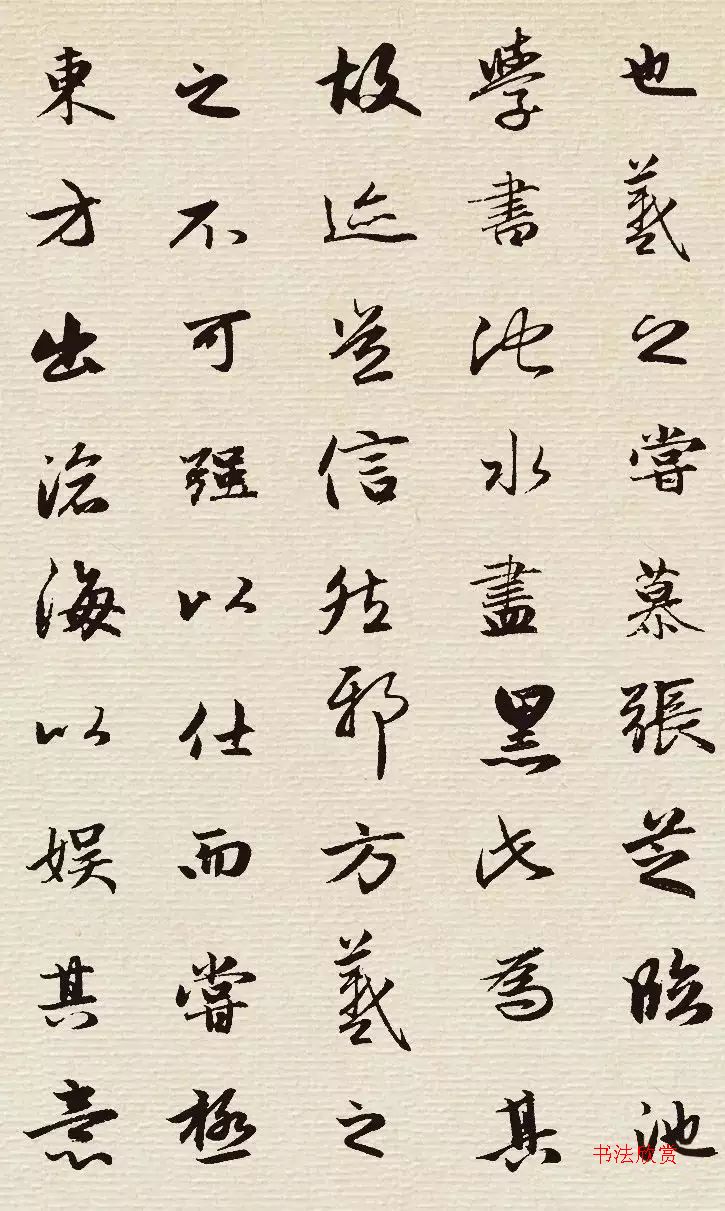 也羲之嘗慕張芝臨池
學書池水盡黑此為其
故迹豈信然邪方羲之
之不可强以仕而嘗極
東方出滄海以娱其意
书法欣赏